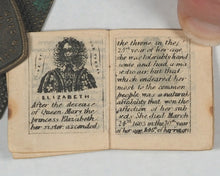 ELIZABETH
After the decease
of Queen Mary the
princess Elizabeth
her sister ascended
the throne, in the
25th year of her age,
she was tolerably hand
some and had a ma
jestic air but that
which endeared her
most to the common
people was a natural
affability that won
the affection of her sub
jects. She died March
24th 1603 in the 70th year
of her age & 45th of her reign